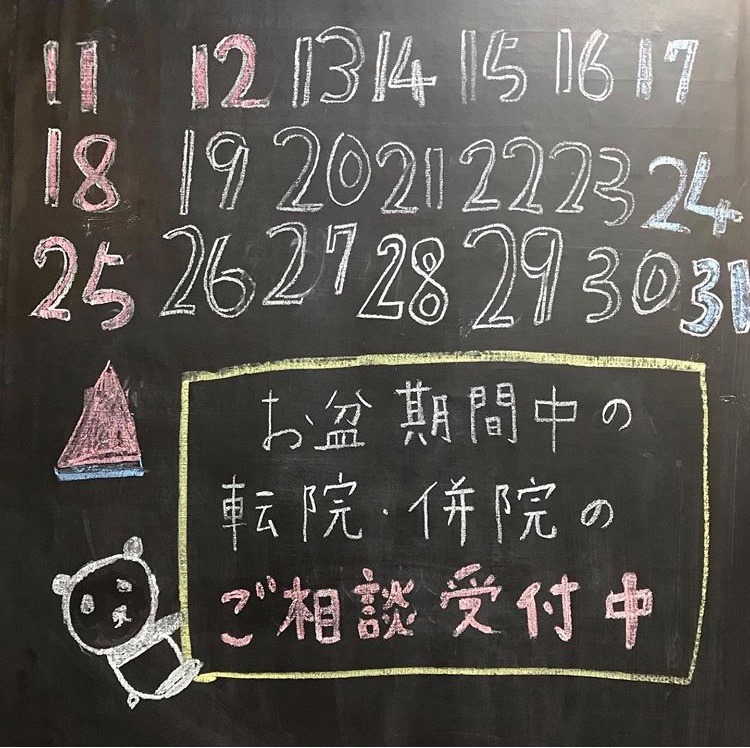 11 12 13 14 15 16 17
18 19 20 21 22 23 24
25 26 27 28 29 30 31
お盆期間中の
転院・併院の
ご相談受付中